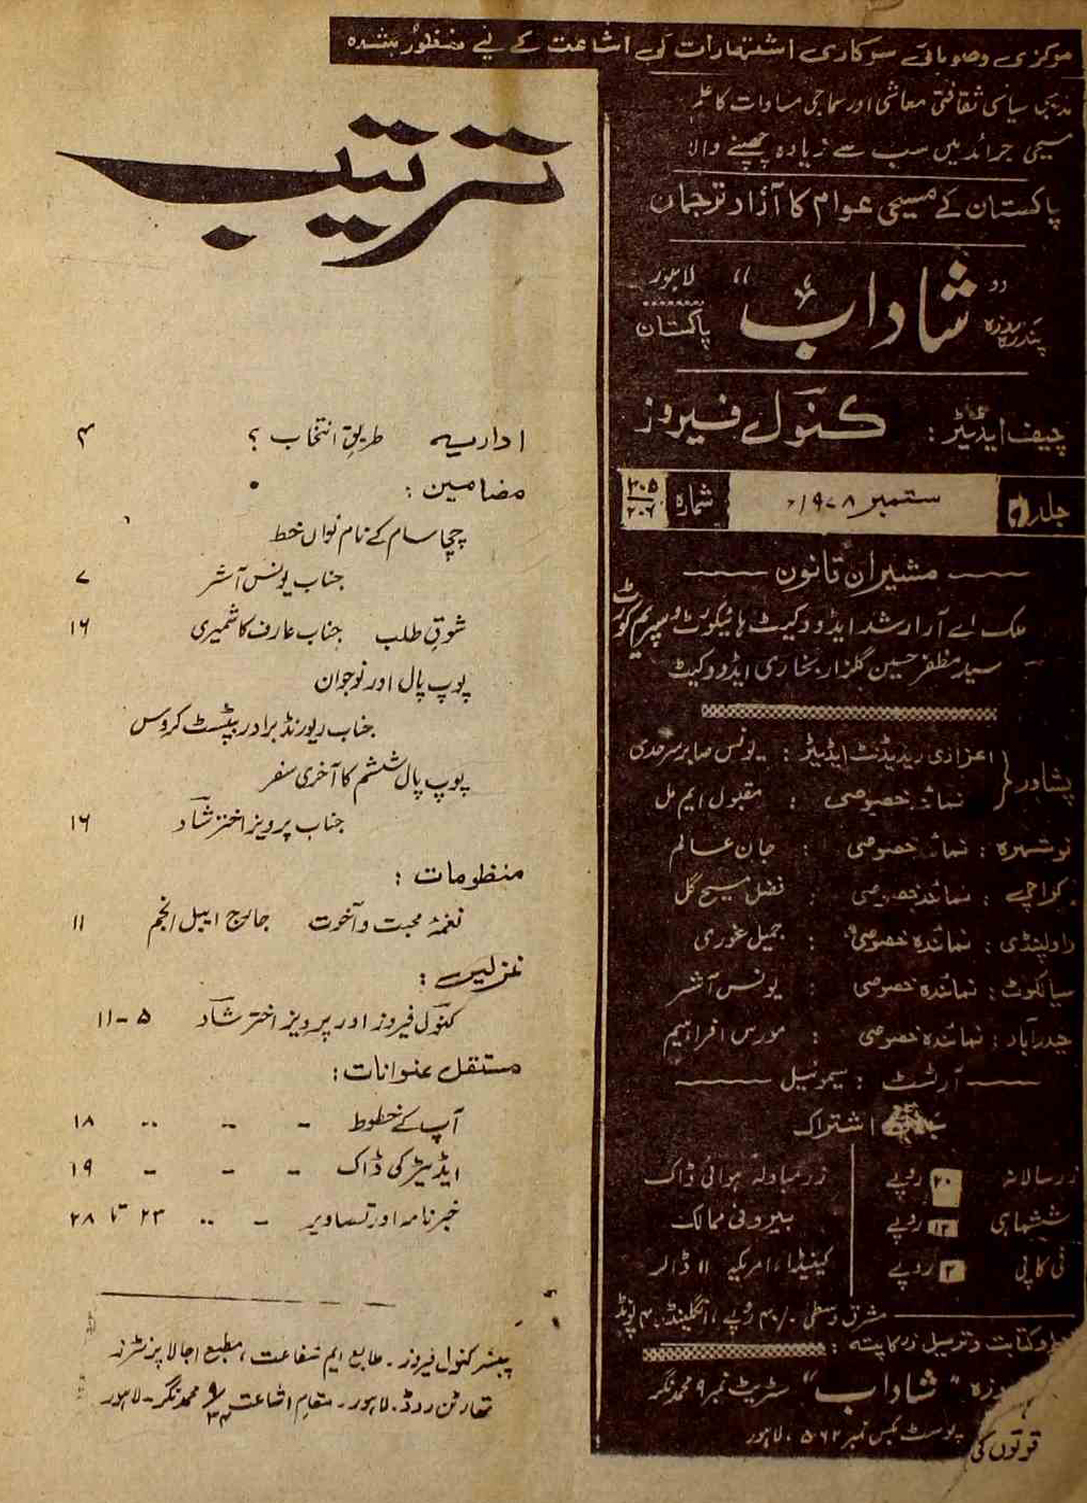 مرکزی و صوبائی سرکاری اشتہارات کی اشاعت کے لیے منظور شدہ
مذہبی سیاسی ثقافتی معاشی اور سماجی مساوات کا علم
مسیحی جرائد میں سب سے زیادہ چھپنے والا
پاکستان کے مسیحی عوام کا آزاد ترجمان
پندرہ روزہ شاداب لاہور
پاکستان
چیف ایڈیٹر : کنول فیروز
جلد ستمبر ۱۹۷۸ء شمارہ ۲۰۵
۲۰۶
مشیران قانون
ملک اے آر ارشد ایڈووکیٹ ہائیکورٹ و سپریم کورٹ
سید مظفر حسین گلزار بخاری ایڈووکیٹ
پشاور اعزازی ریذیڈنٹ ایڈیٹر : یونس صابر سرحدی
نمائندہ خصوصی : مقبول ایم مل
نوشہرہ : نمائندہ خصوصی : جان عالم
کراچی : نمائندہ خصوصی : فضل مسیح گل
راولپنڈی : نمائندہ خصوصی : جمیل غوری
سیالکوٹ : نمائندہ خصوصی : یونس آشر
حیدرآباد : نمائندہ خصوصی : مورس افراہیم
آرٹسٹ : سیموئیل
اشتراک
زر سالانہ ۲۰ روپے
ششماہی ۱۲ روپے
فی کاپی ۲ روپے
زر مبادلہ ہوائی ڈاک
بیرونی ممالک
کینیڈا، امریکہ ۱۱ ڈالر
مشرق وسطی ۴۰/- روپے، انگلینڈ ۴ پونڈ
وکتابت و ترسیل زر کا پتہ :
روزہ "شاداب" سٹریٹ نمبر ۹ محمد نگر
پوسٹ بکس نمبر ۵۶۲، لاہور
قوتوں کی
ترتیب
اداریہ طریق انتخاب ؟ ۴
مضامین :
چچا سام کے نام نواں خط
جناب یونس آشر ۷
شوق طلب جناب عارف کاشمیری ۱۶
پوپ پال اور نوجوان
جناب ریورنڈ برادر بپٹسٹ کروس
پوپ پال ششم کا آخری سفر
جناب پرویز اختر شاد ۱۶
منظومات :
نغمۂ محبت و اخوت جارج ایبل انجم ۱۱
غزلیں :
کنول فیروز اور پرویز اختر شاد ۵-۱۱
مستقل عنوانات :
آپ کے خطوط - - -- ۱۸
ایڈیٹر کی ڈاک - - - ۱۹
خبرنامہ اور تصاویر - -- ۲۳ تا ۲۸
پبلشر کنول فیروز۔ طابع ایم شفاعت، مطبع اجالا پرنٹرز
تھارٹن روڈ، لاہور۔ مقام اشاعت ۹/۳۴ محمد نگر - لاہور